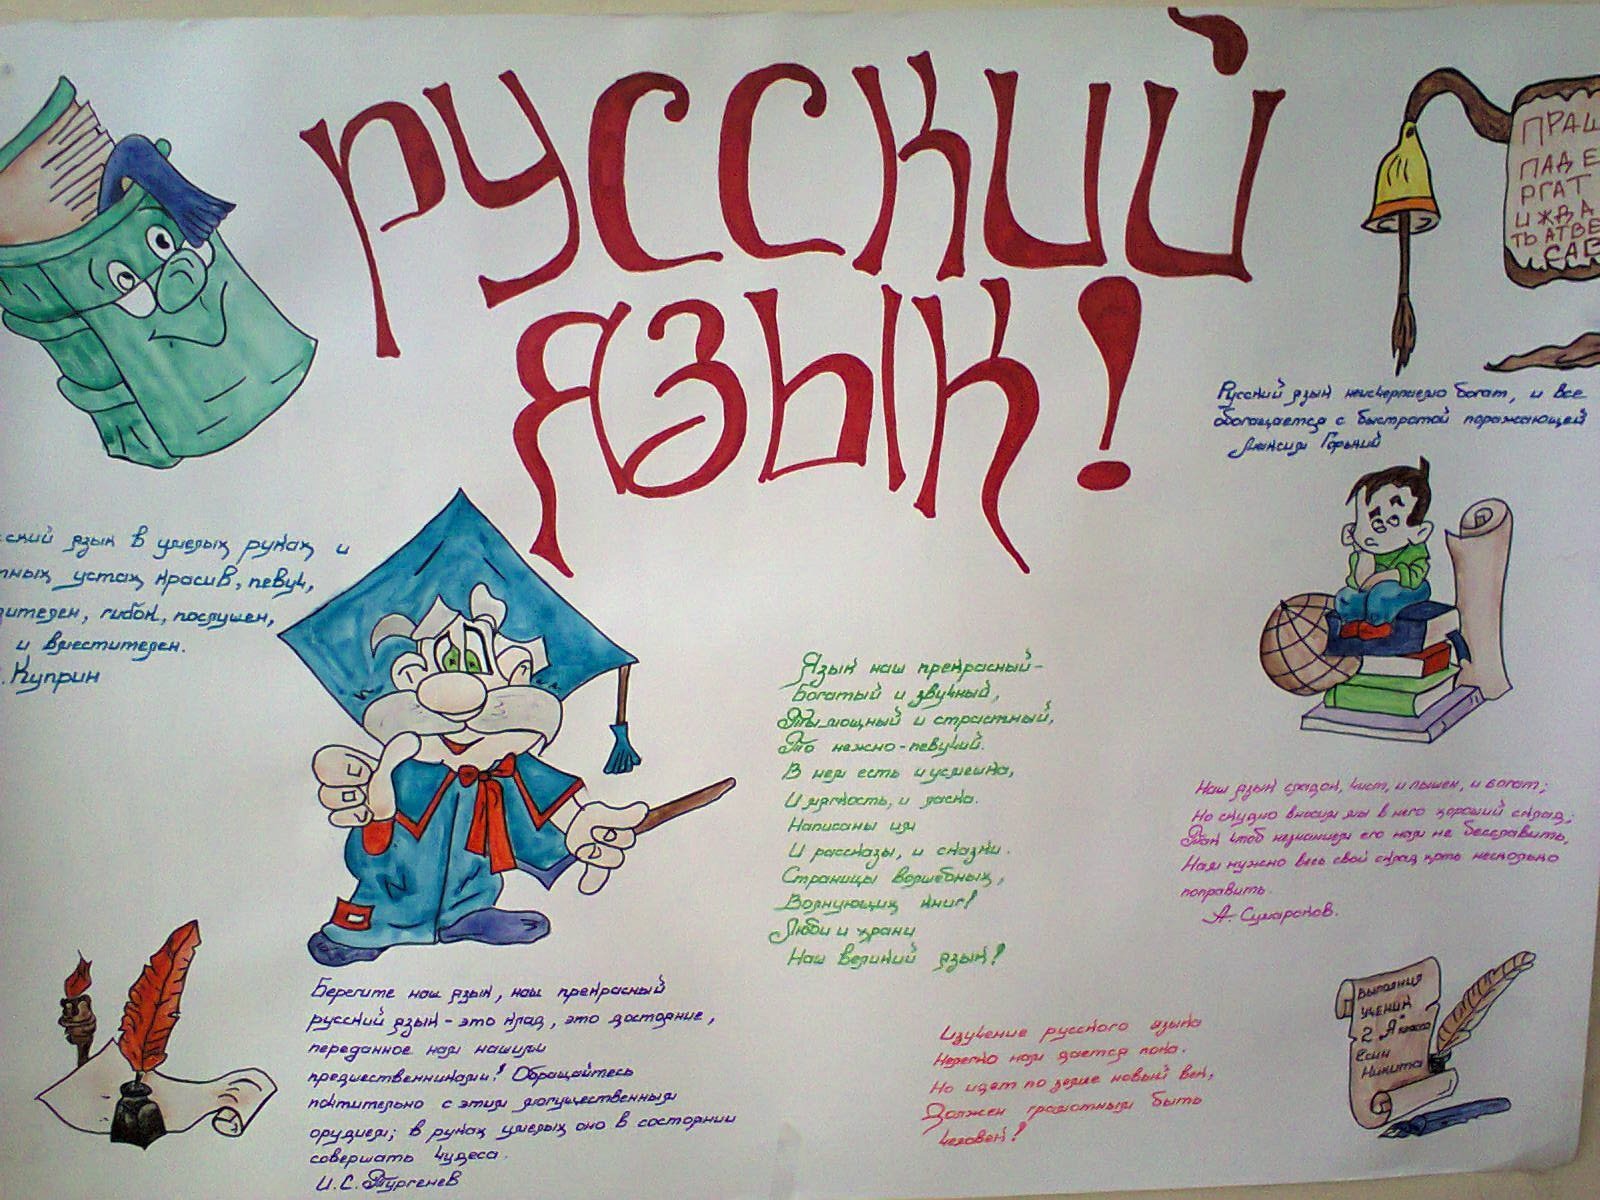 Русский
язык!
ПРАШ
ПАДЕ
РГАТ
ИЖДА
ТЬ АТВЕ
САВ
Русский язык неисчерпаемо богат, и все
обогащается с быстротой поражающей
Максим Горький
ский язык в умелых руках и
тных устах красив, певуч,
зителен, гибок, послушен,
и вместителен.
. Куприн
Язык наш прекрасный-
Богатый и звучный,
То мощный и страстный,
То нежно-певучий.
В нем есть и усмешка,
И мягкость, и ласка.
Написаны им
И рассказы, и сказки.
Страницы волшебных,
Волнующих книг!
Люби и храни
Наш великий язык!
Наш язык сладок, чист, и пышен, и богат;
Но скудно вносим мы в него хороший склад;
Так чтоб незнанием его нам не бесславить,
Нам нужно весь свой склад хоть несколько
поправить.
А. Сумароков.
Берегите наш язык, наш прекрасный
русский язык - это клад, это достояние,
переданное нам нашими
предшественниками! Обращайтесь
почтительно с этим могущественным
орудием; в руках умелых оно в состоянии
совершать чудеса.
И.С. Тургенев
Изучение русского языка
Нелегко нам дается пока.
Но идет по земле новый век,
Должен грамотным быть
человек!
Выполнил
ученик
2 "А" класса
Есин
Никита